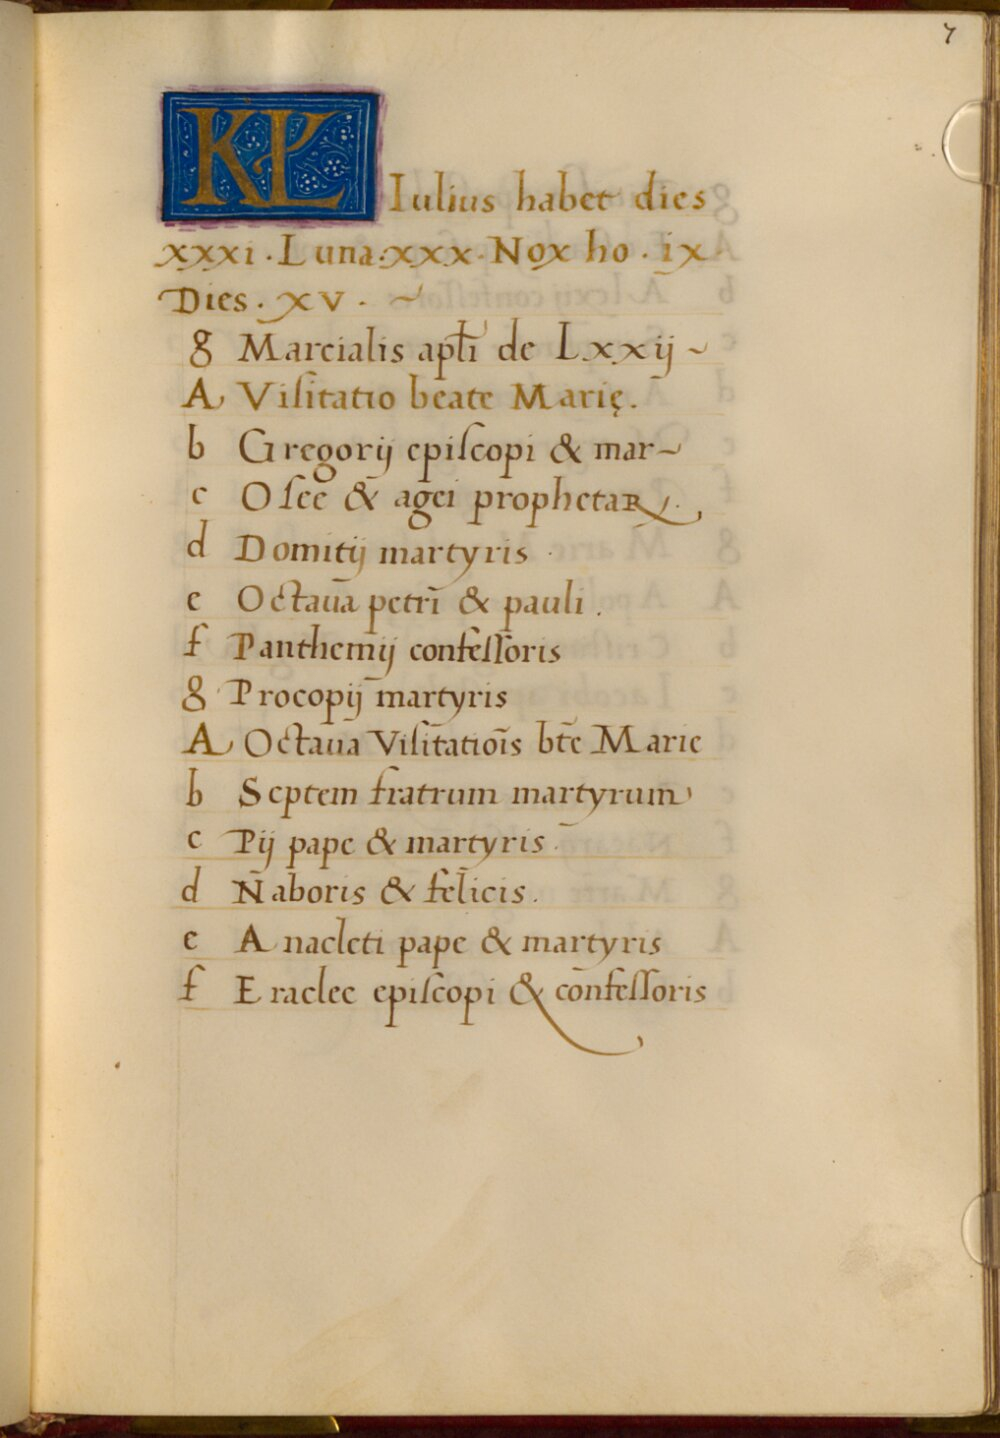 7
KL Iulius habet dies
xxxi · Luna · xxx · Nox ho · ix ·
Dies · xv · ~
g Marcialis apłi de Lxxij ~
A Viſitatio beate Marię.
b Gregorij epiſcopi & mar~
c Oſee & agei prophetaꝝ.
d Domitij martyris ·
e Octaua petri & pauli .
f Panthemij confeſſoris
g Procopij martyris
A Octaua Viſitatiōis bt̄e Marie
b Septem fratrum martyrum
c Pij pape & martyris ·
d Naboris & felicis .
e Anacleti pape & martyris
f Eraclee epiſcopi & confeſſoris